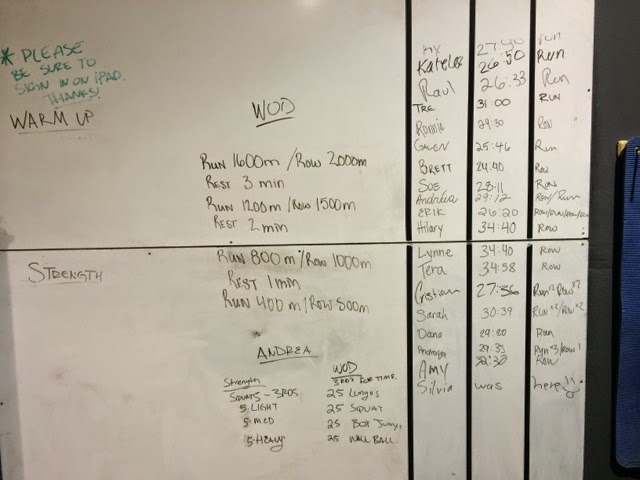 * PLEASE
BE SURE TO
SIGN IN ON IPAD.
THANKS!
WARM UP
WOD
RUN 1600m / ROW 2000m
REST 3 min
RUN 1200m / ROW 1500m
REST 2 min
RUN 800m / ROW 1000m
REST 1 min
RUN 400m / ROW 500m
STRENGTH
ANDREA
Strength
SQUATS - 3RDS
5-LIGHT
5-MED
5-HEAVY
WOD
3RDS FOR TIME.
25 Lunges
25 SQUAT
25 BOX Jumps
25 WALL BALL.
27:40 run
26:50 Run
Paul 26:33 Run
TRE 31:00 RUN
Ronnie 29:30 Row
GWEN 25:46 Run
BRETT 24:40 Row
SOE 28:11 Row
Andréa 29:12 Row/Run
ERIK 26:20
Hilary 34:40 Row
Lynne 34:40 Row
Tera 34:58 Row
Cristian 27:56
Sarah 30:39 Run x2/Row x2
Dana 29:20 Run
29:33 Run x3/Row 1
Amy 32:30 Row
Silvia was here!!